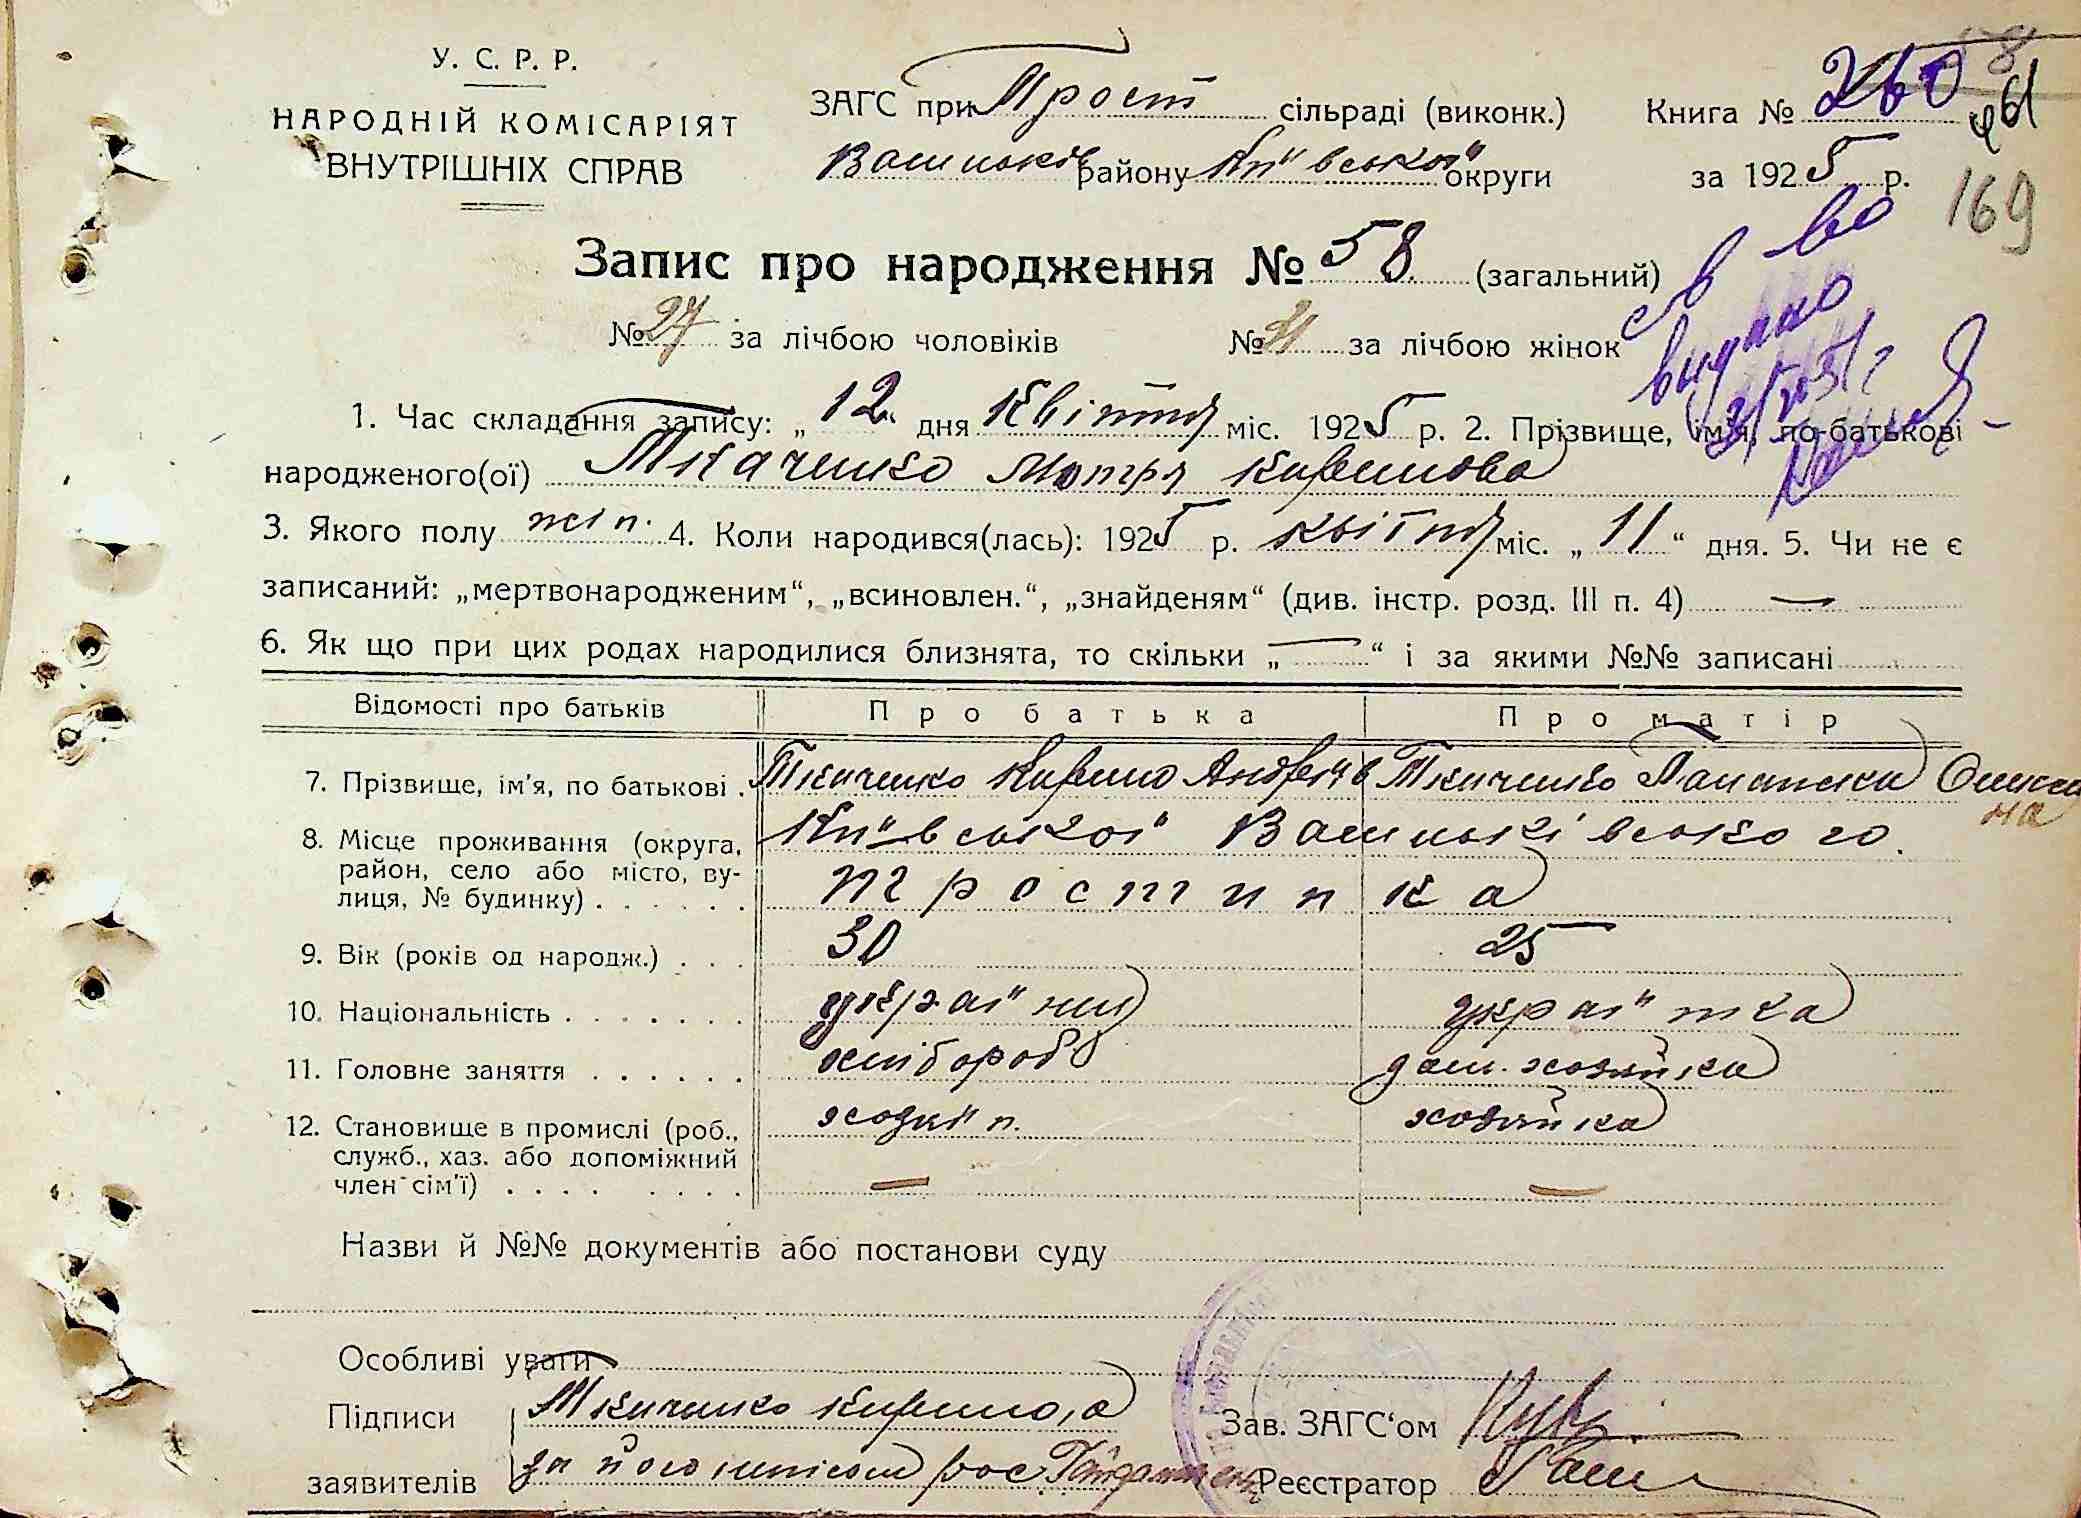 У. С. Р. Р.
НАРОДНІЙ КОМІСАРІЯТ
ВНУТРІШНІХ СПРАВ
ЗАГС при Трост сільраді (виконк.) Книга № 260
району Київської округи за 1925 р.
169
Запис про народження № 58 (загальний)
№ 27 за лічбою чоловіків № 31 за лічбою жінок
видано
1. Час складання запису: „ 12 дня Квітня міс. 1925 р. 2. Прізвище, ім'я, по-батькові
народженого(ої) Ткаченко Мотря Кирилова
3. Якого полу жін. 4. Коли народився(лась): 1925 р. квітня міс. „ 11 “ дня. 5. Чи не є
записаний: „мертвонародженим“, „всиновлен.“, „знайденям“ (див. інстр. розд. III п. 4) —
6. Як що при цих родах народилися близнята, то скільки „ — “ і за якими №№ записані
Відомості про батьків Про батька Про матір
7. Прізвище, ім'я, по батькові . Ткаченко Кирило Андреїв Ткаченко
8. Місце проживання (округа, район, село або місто, ву-лиця, № будинку) . . . . . . Київської
Тростинка
9. Вік (років од народж.) . . . 30 25
10. Національність . . . . . . . україниц українка
11. Головне заняття . . . . . . хлібороб дом. хозяйка
12. Становище в промислі (роб., хозяїн. хозяйка
служб., хаз. або допоміжний
член сім'ї) . . . . . . . . — —
Назви й №№ документів або постанови суду
Особливі уваги
Підписи Ткаченко Кирило, а Зав. ЗАГС‘ом
заявителів за його Реєстратор